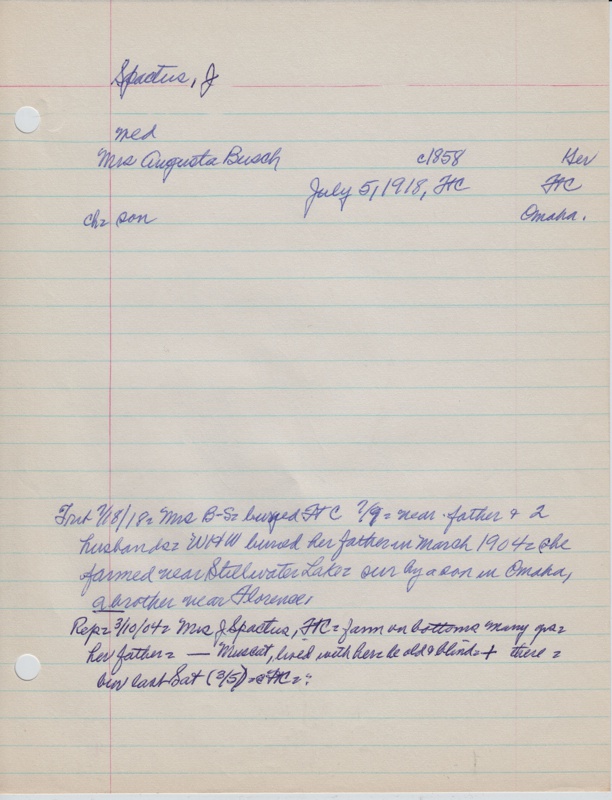 Spactus, J
med
Mrs Augusta Busch c1858 Ger
July 5, 1918, FtC FtC
ch= son Omaha.
Trib 7/18/18= Mrs B-S= buryed Ft C 7/9= near father & 2
husbands= WHW buried her father in March 1904= she
farmed near Stillwater Lake= sur by a son in Omaha,
a brother near Florence,
Rep= 3/10/04= Mrs J Spactus, FtC= farm on bottoms many yrs=
her father= — Muscat, lived with her= be old & blind= + there=
bur last Sat (3/5) = FtC=